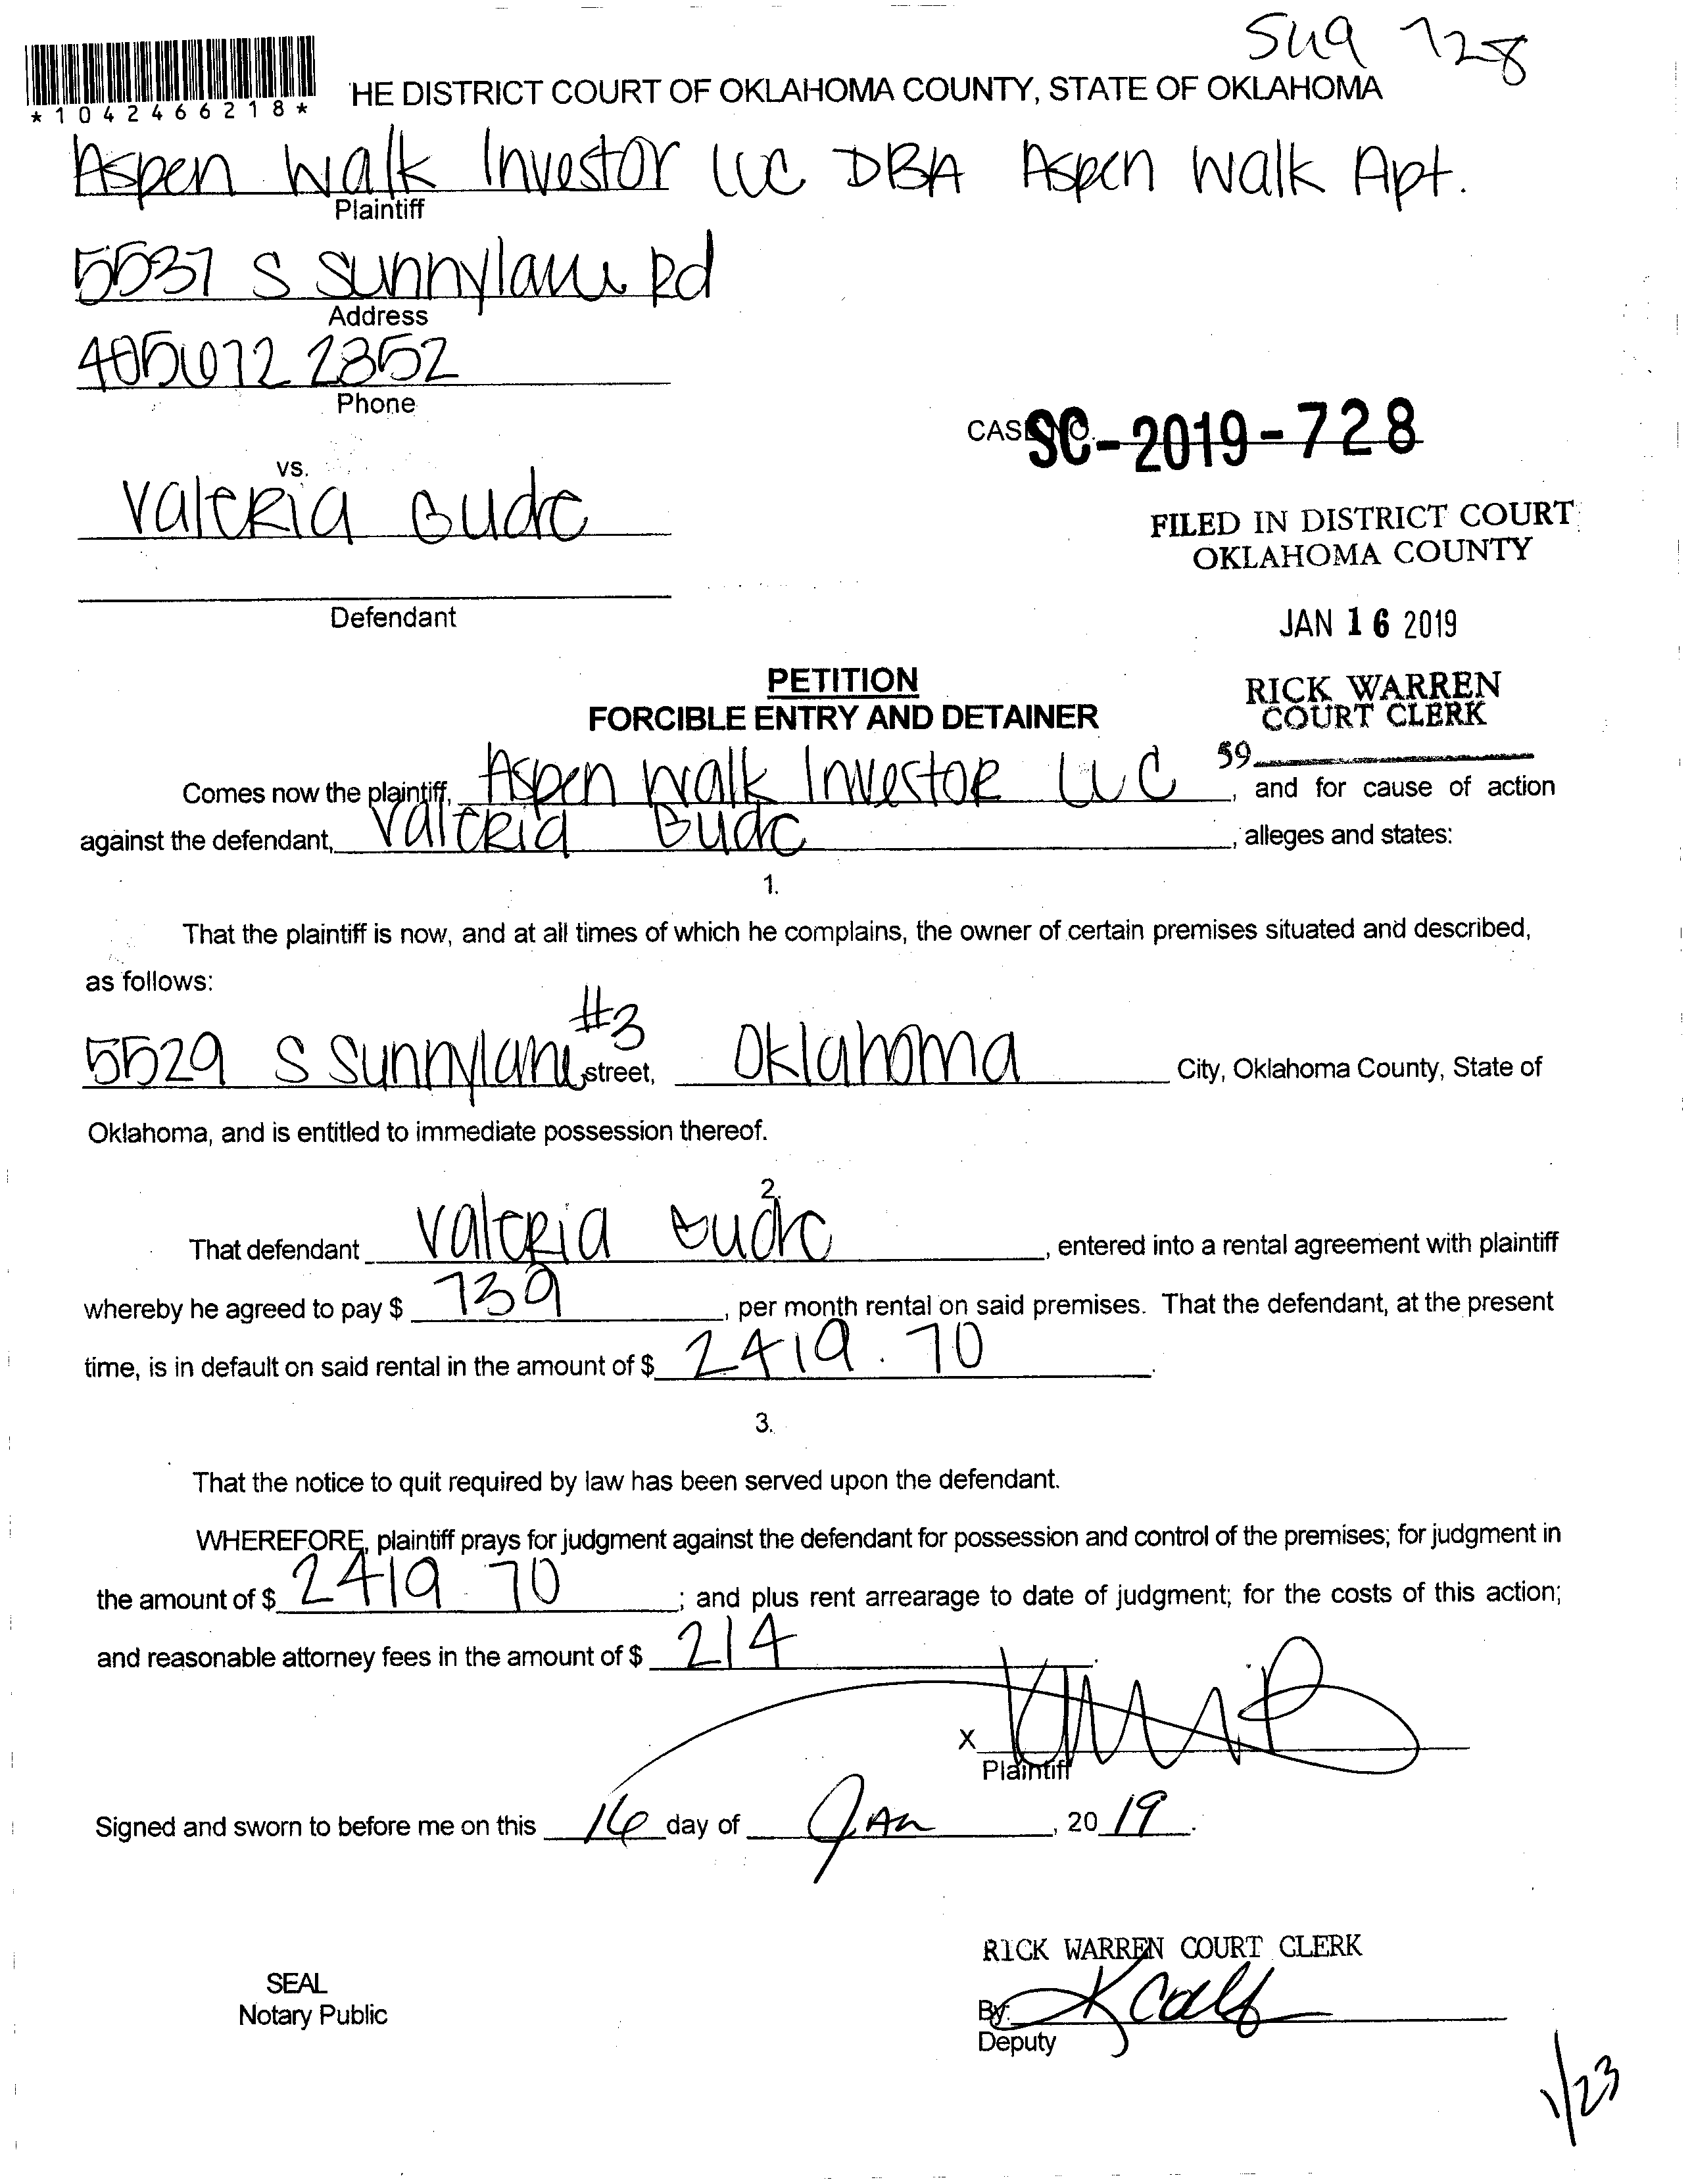 SC19 728
*1042466218*
HE DISTRICT COURT OF OKLAHOMA COUNTY, STATE OF OKLAHOMA
Aspen Walk Investor LLC DBA Aspen Walk Apt.
Plaintiff
5537 S Sunnylane Rd
Address
405 672 2352
Phone
CASE NO. SC-2019-728
vs.
Valeria
FILED IN DISTRICT COURT
OKLAHOMA COUNTY
Defendant
JAN 16 2019
PETITION
RICK WARREN
FORCIBLE ENTRY AND DETAINER
COURT CLERK
59
Comes now the plaintiff, Aspen Walk Investor LLC, and for cause of action
against the defendant, Valeria, alleges and states:
1.
That the plaintiff is now, and at all times of which he complains, the owner of certain premises situated and described,
as follows:
5529 S Sunnylane #3 street, Oklahoma City, Oklahoma County, State of
Oklahoma, and is entitled to immediate possession thereof.
2.
That defendant Valeria, entered into a rental agreement with plaintiff
whereby he agreed to pay $ 739, per month rental on said premises. That the defendant, at the present
time, is in default on said rental in the amount of $ 2419.70.
3.
That the notice to quit required by law has been served upon the defendant.
WHEREFORE, plaintiff prays for judgment against the defendant for possession and control of the premises; for judgment in
the amount of $ 2419.70; and plus rent arrearage to date of judgment; for the costs of this action;
and reasonable attorney fees in the amount of $ 214.
X
Plaintiff
Signed and sworn to before me on this 16 day of Jan, 20 19.
RICK WARREN COURT CLERK
SEAL
Notary Public
By:
Deputy
1/23